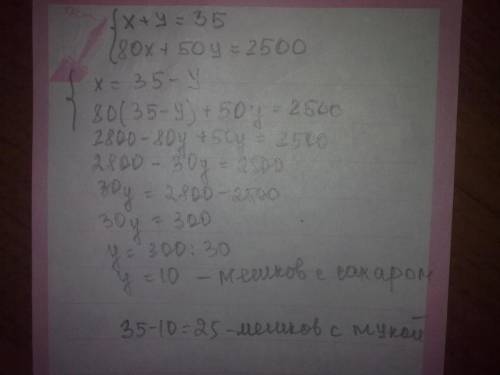 x+y=35
80x+50y=2500
x=35-y
80(35-y)+50y=2500
2800-80y+50y=2500
2800-30y=2500
30y=2800-2500
30y=300
y=300:30
y=10 - мешков с сахаром
35-10=25-мешков с мукой